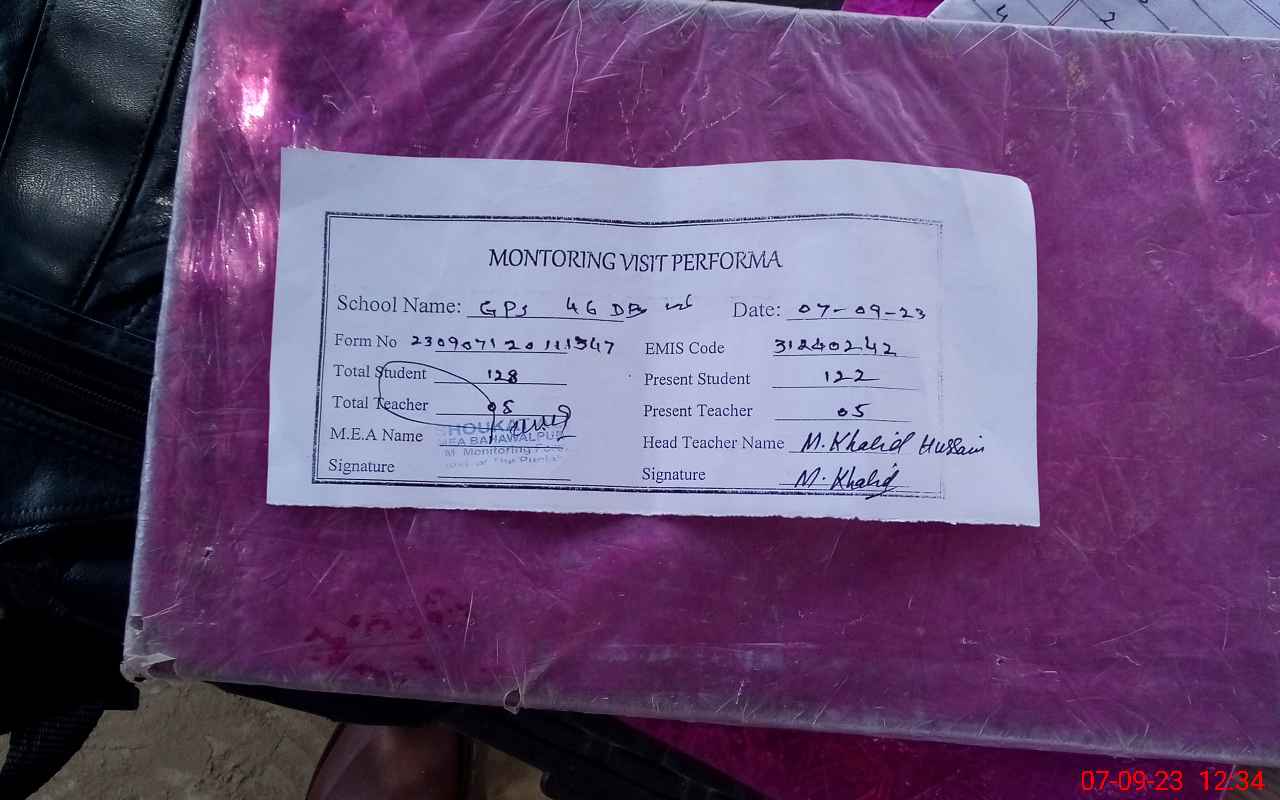 MONTORING VISIT PERFORMA
School Name: GPS 46 DB Date: 07-09-23
Form No 230907120111547 EMIS Code 31240242
Total Student 128 Present Student 122
Total Teacher 05 Present Teacher 05
M.E.A Name SHOUKAT Head Teacher Name M. Khalid Hussain
MEA BAHAWALPUR
Monitoring
Signature Signature M. Khalid
of The Punjab
07-09-23 12:34